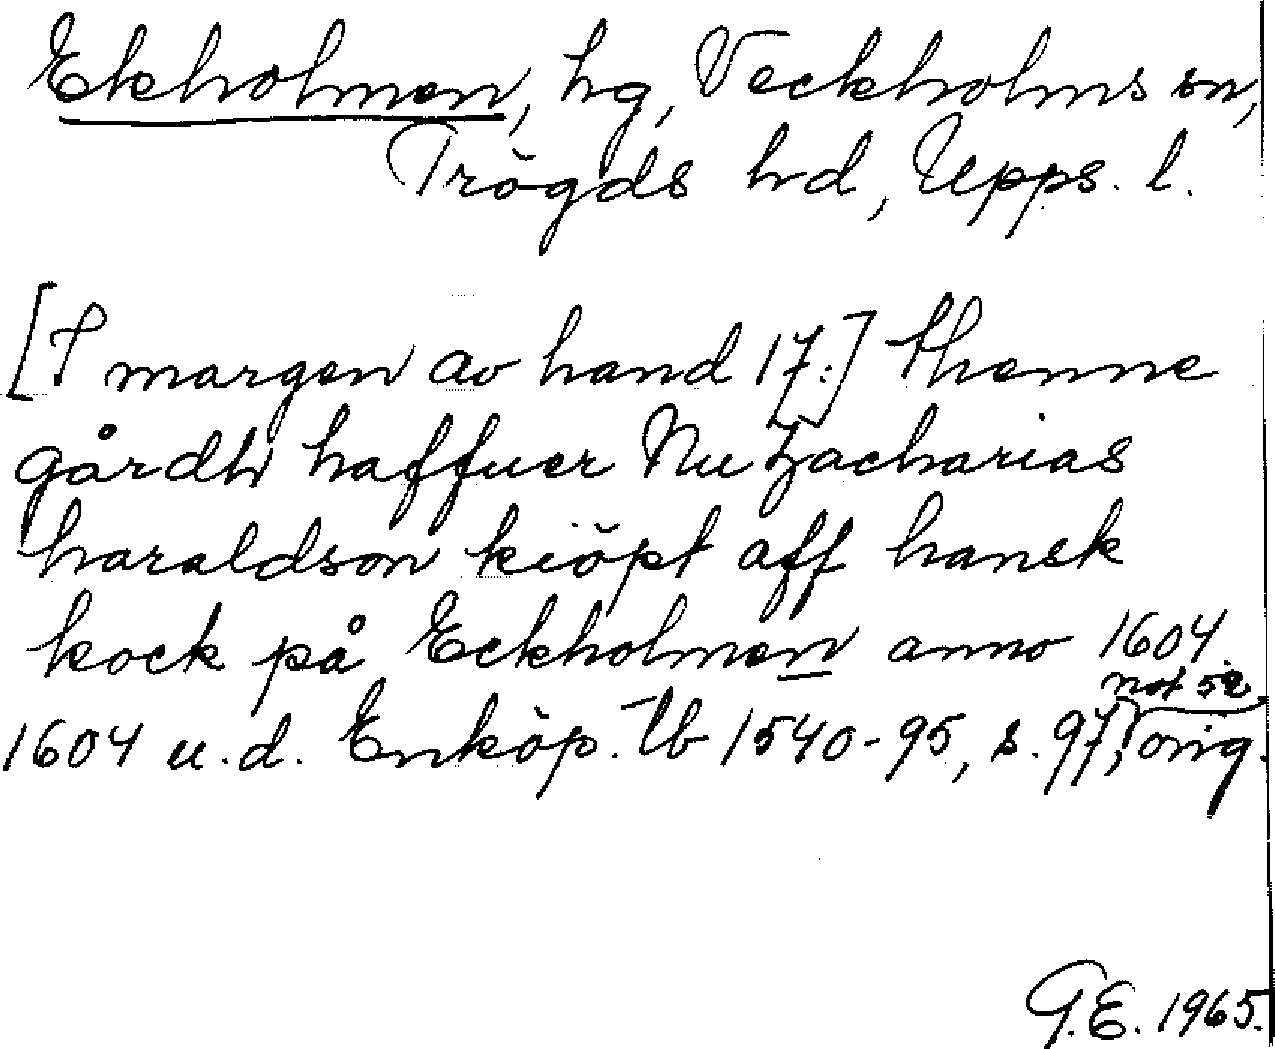 Ekholmen, hg, Veckholms sn,
Trögds hd, Upps. l.
[I margen av hand 17:] thenne
gårdh haffuer Nu Zacharias
haraldson kiöpt aff hansk
kock på Eckholmen anno 1604.
1604 u.d. Enköp. Tb 1540-95, s. 97, not 52, orig.
G.E. 1965.